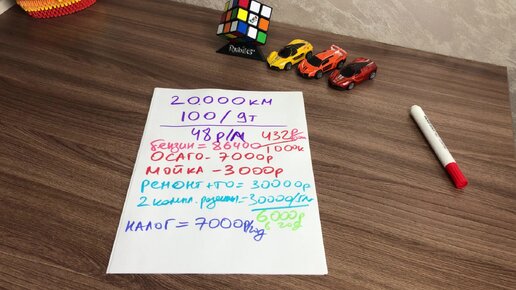 Rubik's
20000км
100/9т
48р/л 432р
бензин = 86400 100к
ОСАГО - 7000р
МОЙКА - 3000р
РЕМОНТ + ТО = 30000р
2 компл. резины - 30000/5л
6000р
в год
НАЛОГ = 7000р/год